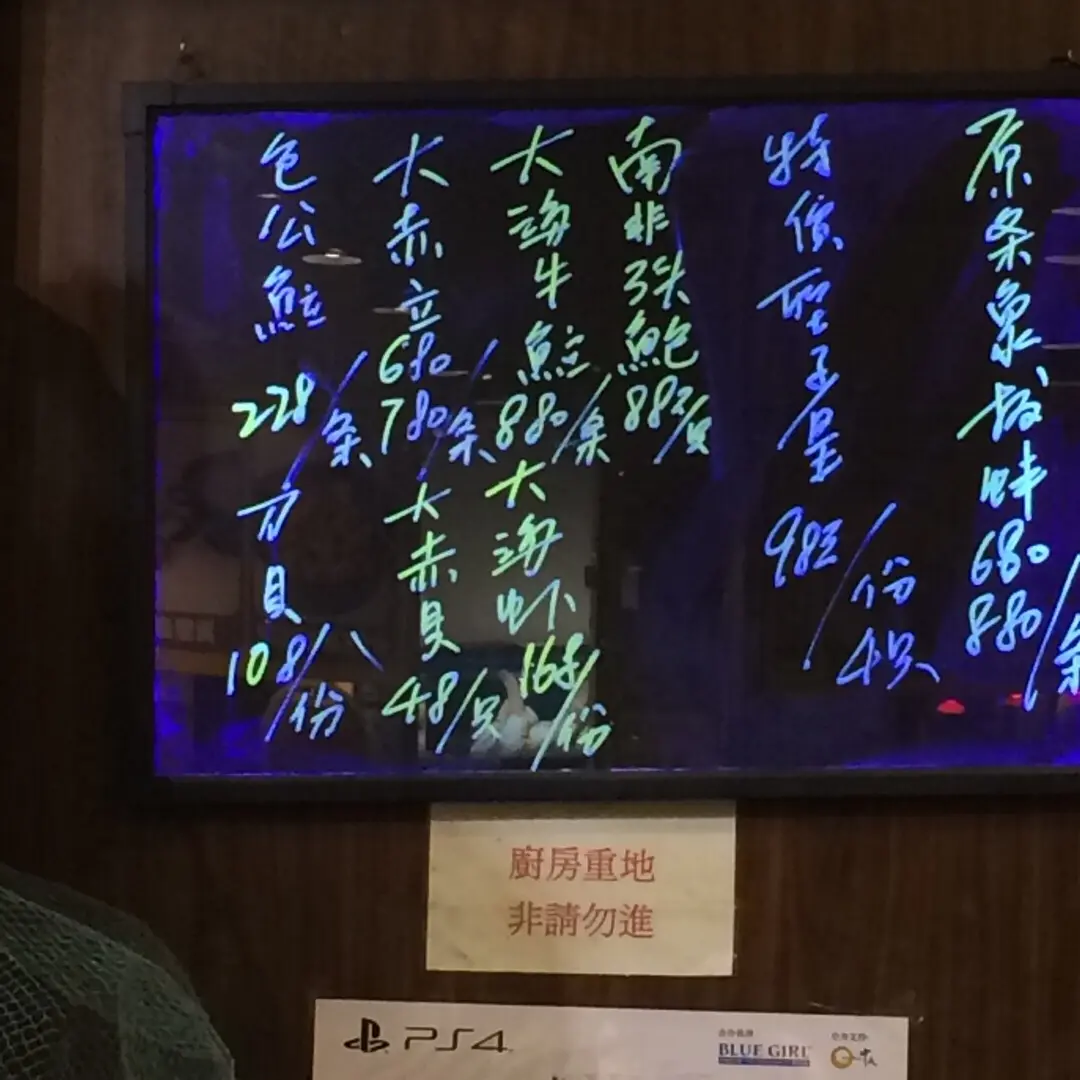 原条象拔蚌
680
880/条
特價聖子皇
98元/份
4只
南非3头鮑
88元/只
大海牛魚立
880/条
大海虾
168/份
大赤立
680
780/条
大赤貝
48/只
包公魚立
228/条
方貝
108/份
八
廚房重地
非請勿進
PS4
BLUE GIRL